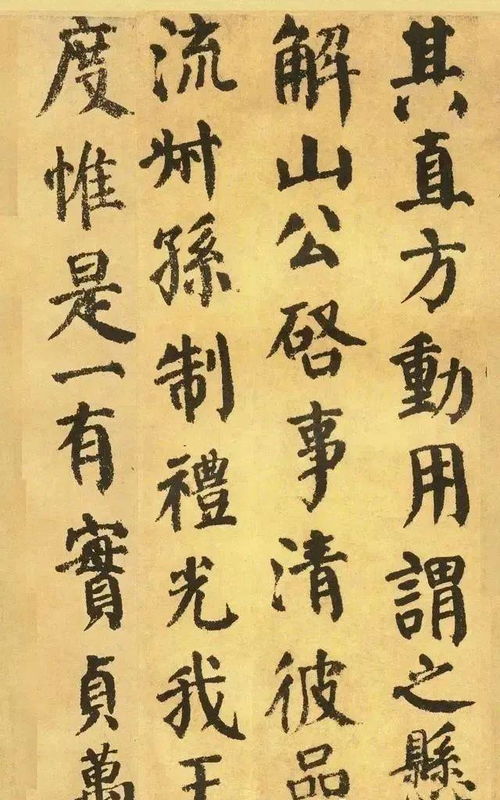 其直方動用謂之縣
解山公啓事清彼品
流叔孫制禮光我王
度惟是一有實貞萬